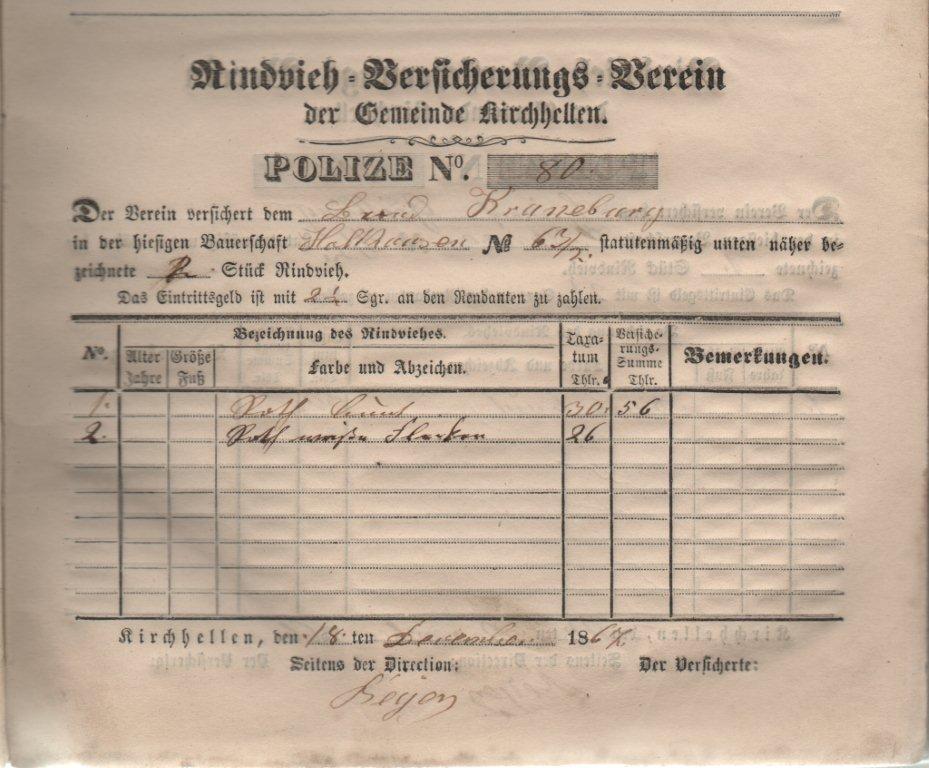 Rindvieh-Versicherungs-Verein
der Gemeinde Kirchhellen.
POLIZE No. 80.
Der Verein versichert dem Kraneburg
in der hiesigen Bauerschaft Holthausen No 63/2. statutenmäßig unten näher be-
zeichnete 2 Stück Rindvieh.
Das Eintrittsgeld ist mit 2½ Sgr. an den Rendanten zu zahlen.
No. Bezeichnung des Rindviehes. Taxa-tum Thlr. Versiche-rungs-Summe Thlr. Bemerkungen.
Alter Jahre Größe Fuß Farbe und Abzeichen.
1. Roth bunt 30. 56
2. Roth weiße Flecken 26
Kirchhellen, den 18. ten 186
Seitens der Direction: Der Versicherte: